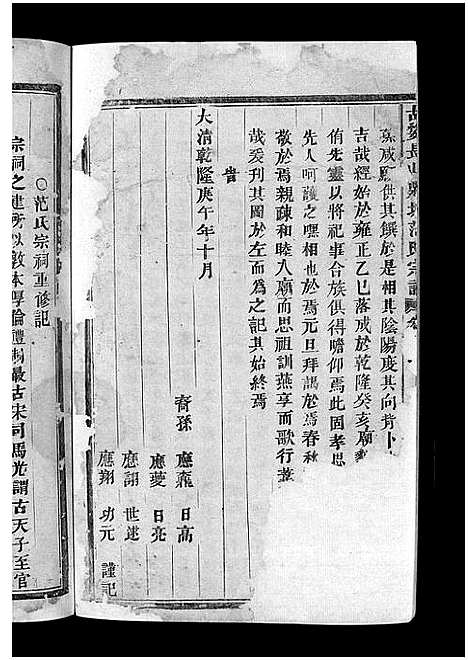 孫咸夙供其饌於是相其陰陽度其向背卜
吉哉經始於雍正乙巳落成於乾隆癸亥廟
侑先靈以將祀事合族俱得瞻仰焉此固孝思
先人呵護之嘿相也於焉元旦拜謁於焉春秋
敬於焉親疎和睦入廟而思祖訓燕享而歌行葦
哉爰刊其圖於左而為之記其始終焉
旹
大清乾隆庚午年十月
裔孫 應 日高
應菱 日亮
應詡 世逑
應翔 功元 謹記
○范氏宗祠重修記
宗祠之建所以敦本厚倫禮制最古宋司馬光謂古天子至官